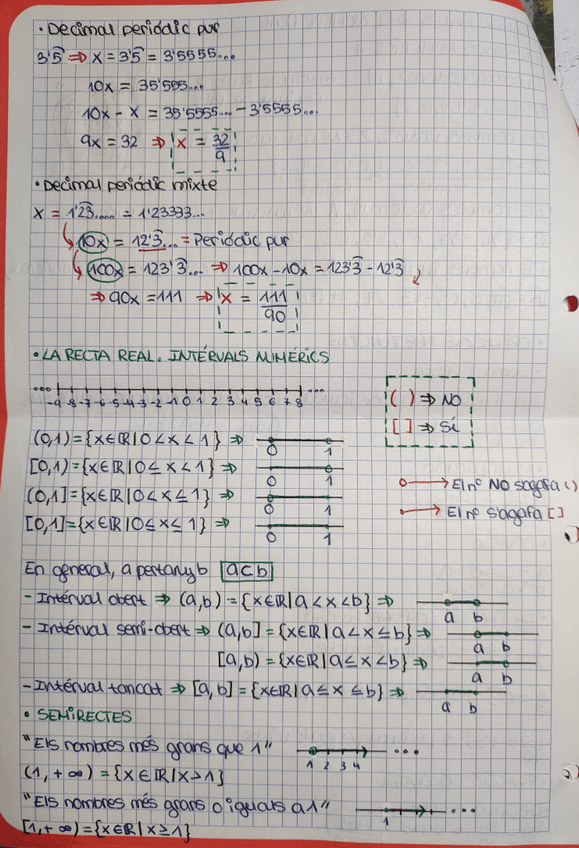 • Decimal periòdic pur
3'5̂ ⇒ x = 3'5̂ = 3'5555...
10x = 35'555...
10x - x = 35'5555... - 3'5555...
9x = 32 ⇒ x = 32/9
• Decimal periòdic mixte
x = 1'23̂..... = 1'23333...
10x = 12'3̂... = Periòdic pur
100x = 123'3̂... ⇒ 100x - 10x = 123'3̂ - 12'3̂
⇒ 90x = 111 ⇒ x = 111/90
• LA RECTA REAL. INTÉRVALS NUMÈRICS
... -9 -8 -7 -6 -5 -4 -3 -2 -1 0 1 2 3 4 5 6 7 8 ...
( ) ⇒ NO
[ ] ⇒ SÍ
(0,1) = {x∈ℝ | 0 < x < 1} ⇒ 0 1
[0,1) = {x∈ℝ | 0 ≤ x < 1} ⇒ 0 1
(0,1] = {x∈ℝ | 0 < x ≤ 1} ⇒ 0 1
[0,1] = {x∈ℝ | 0 ≤ x ≤ 1} ⇒ 0 1
El nº NO s'agafa ( )
El nº s'agafa [ ]
En general, a pertany b a⊂b
- Intérval obert ⇒ (a,b) = {x∈ℝ | a < x < b} ⇒ a b
- Intérval semi-obert ⇒ (a,b] = {x∈ℝ | a < x ≤ b} ⇒ a b
[a,b) = {x∈ℝ | a ≤ x < b} ⇒ a b
- Intérval tancat ⇒ [a,b] = {x∈ℝ | a ≤ x ≤ b} ⇒ a b
• SEMIRECTES
"Els nombres més grans que 1" 1 2 3 4 ...
(1, +∞) = {x∈ℝ | x > 1}
"Els nombres més grans o iguals a 1" 1 ...
[1, +∞) = {x∈ℝ | x ≥ 1}